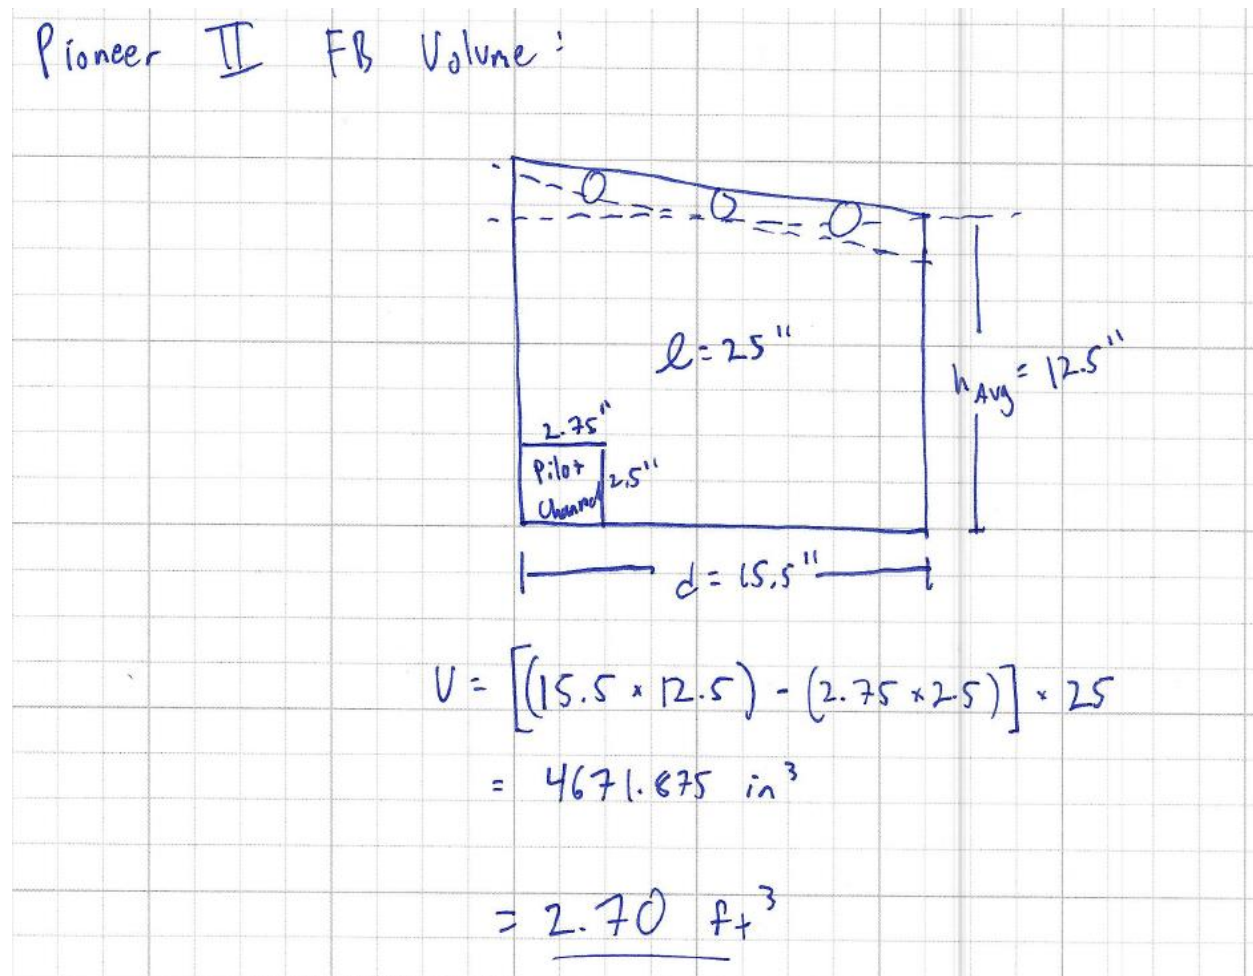 Pioneer II FB Volume:
l = 25"
h Avg = 12.5"
2.75"
Pilot
Channel
2.5"
d = 15.5"
V = [(15.5 × 12.5) - (2.75 × 2.5)] × 25
= 4671.875 in³
= 2.70 ft³